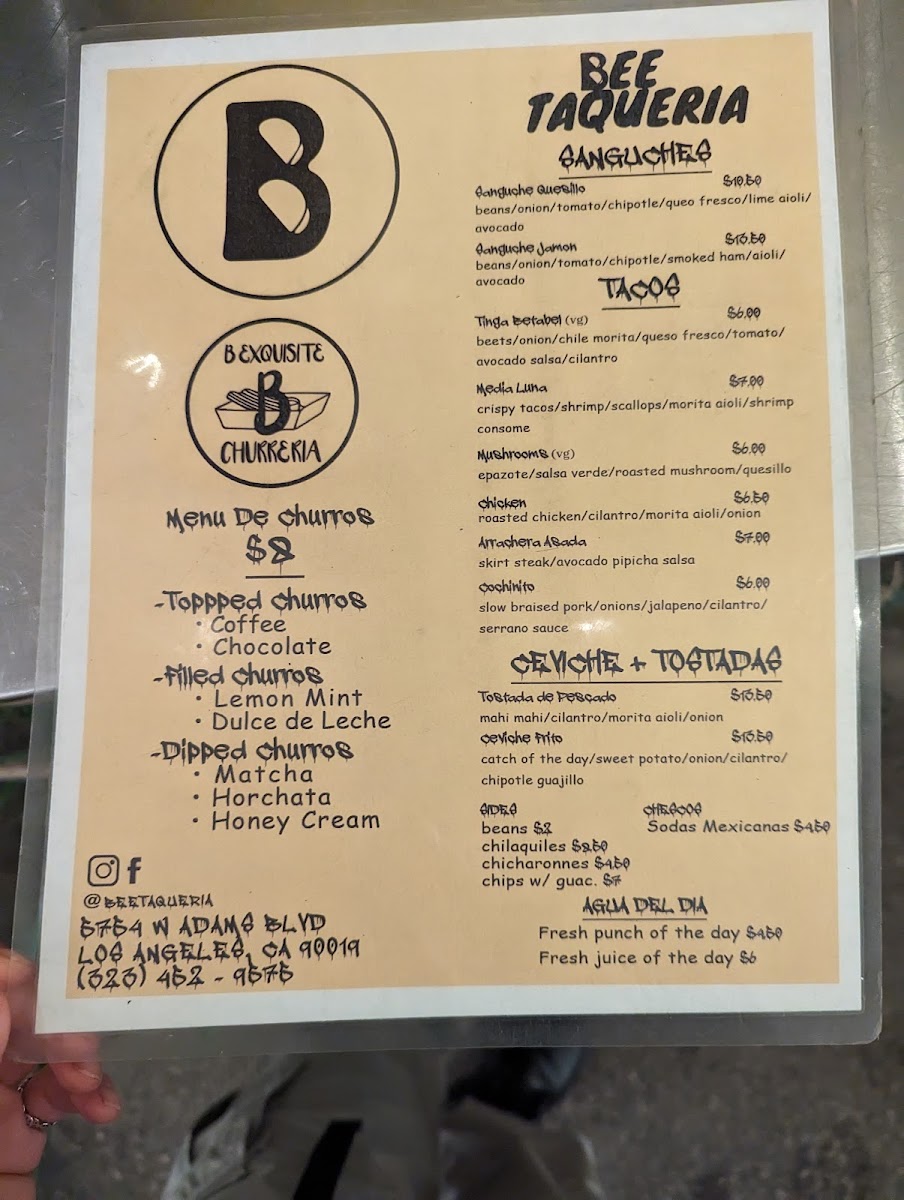 B
B EXQUISITE
B
CHURRERIA
Menu De Churros
$8
-Toppped Churros
• Coffee
• Chocolate
-Filled Churros
• Lemon Mint
• Dulce de Leche
-Dipped Churros
• Matcha
• Horchata
• Honey Cream
@BEETAQUERIA
5754 W ADAMS BLVD
LOS ANGELES, CA 90019
(323) 452 - 9575
BEE
TAQUERIA
SANGUCHES
Sanguche Quesillo $10.50
beans/onion/tomato/chipotle/queo fresco/lime aioli/
avocado
Sanguche Jamon $13.50
beans/onion/tomato/chipotle/smoked ham/aioli/
avocado
TACOS
Tinga Betabel (vg) $6.00
beets/onion/chile morita/queso fresco/tomato/
avocado salsa/cilantro
Media Luna $7.00
crispy tacos/shrimp/scallops/morita aioli/shrimp
consome
Mushrooms (vg) $6.00
epazote/salsa verde/roasted mushroom/quesillo
Chicken $6.50
roasted chicken/cilantro/morita aioli/onion
Arrachera Asada $7.00
skirt steak/avocado pipicha salsa
Cochinito $6.00
slow braised pork/onions/jalapeno/cilantro/
serrano sauce
CEVICHE + TOSTADAS
Tostada de Pescado $13.50
mahi mahi/cilantro/morita aioli/onion
Ceviche Frito $13.50
catch of the day/sweet potato/onion/cilantro/
chipotle guajillo
SIDES
beans $2
chilaquiles $8.50
chicharonnes $4.50
chips w/ guac. $7
CHESCOS
Sodas Mexicanas $4.50
AGUA DEL DIA
Fresh punch of the day $4.50
Fresh juice of the day $6